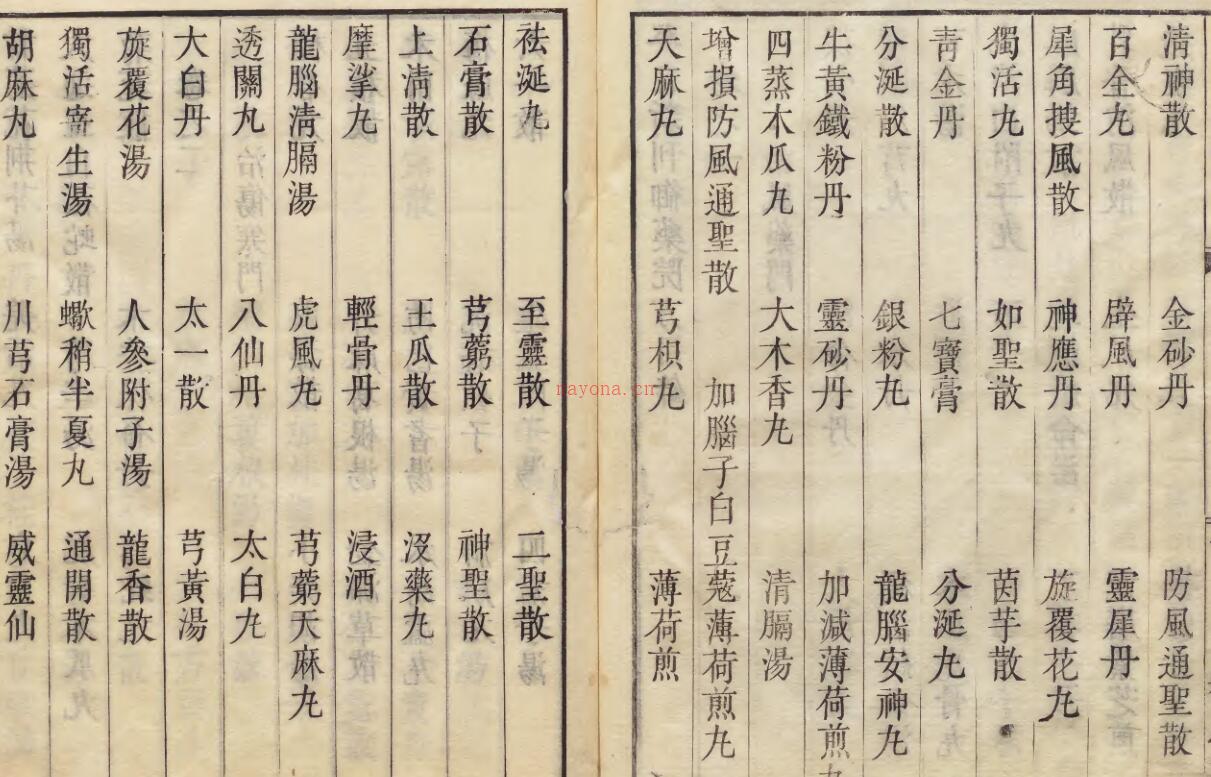 清神散 金砂丹 防風通聖散
百全丸 辟風丹 靈犀丹
犀角搜風散 神應丹 旋覆花丸
獨活丸 如聖散 茵芋散
青金丹 七寶膏 分涎丸
分涎散 銀粉丸 龍腦安神丸
牛黃鐵粉丹 靈砂丹 加減薄荷煎丸
四蒸木瓜丸 大木香丸 清膈湯
增損防風通聖散 加腦子白豆蔻薄荷煎丸
天麻丸 芎枳丸 薄荷煎
祛涎丸 至靈散 二聖散
石膏散 芎藭散 神聖散
上淸散 王瓜散 沒藥丸
摩挲丸 輕骨丹 浸酒
龍腦淸膈湯 虎風丸 芎藭天麻丸
透關丸 八仙丹 太白丸
大白丹 太一散 芎黃湯
旋覆花湯 人參附子湯 龍香散
獨活寄生湯 蠍稍半夏丸 通開散
胡麻丸 川芎石膏湯 威靈仙
nayona.cn